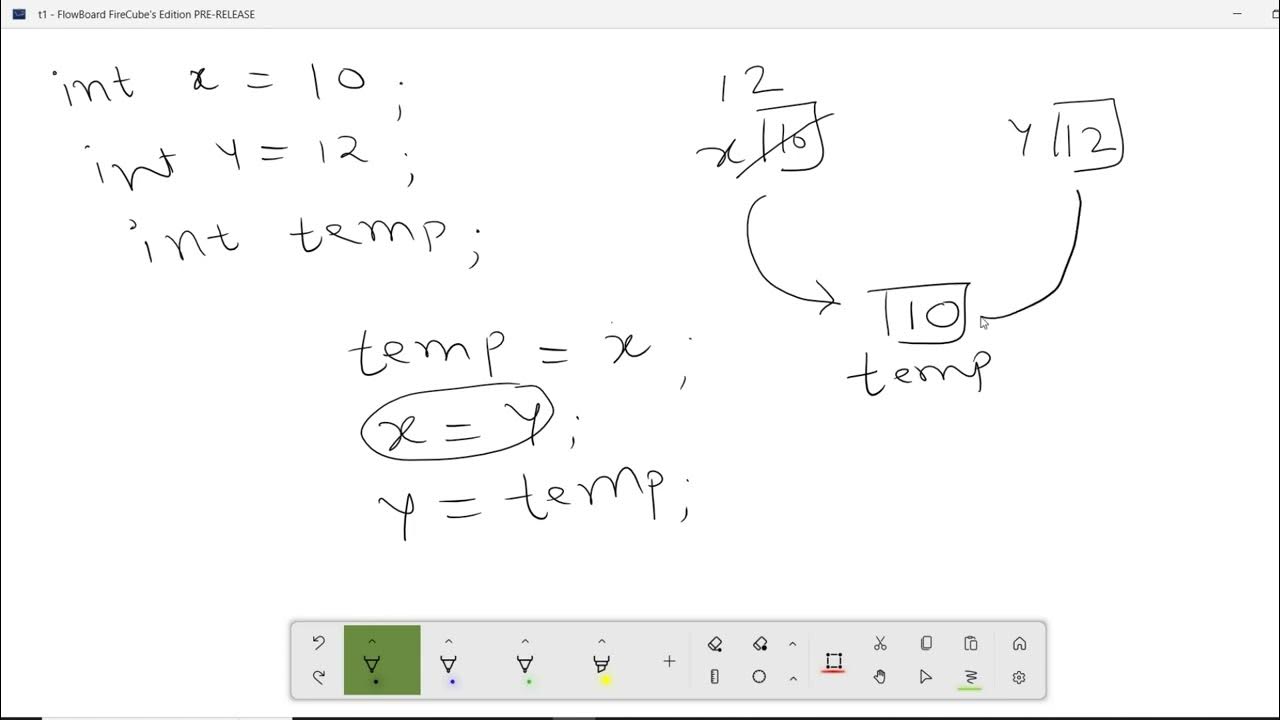 t1 - FlowBoard FireCube's Edition PRE-RELEASE
int x = 10 ;
int y = 12 ;
int temp ;
temp = x ;
x = y ;
y = temp ;
12
x 10
y 12
10
temp